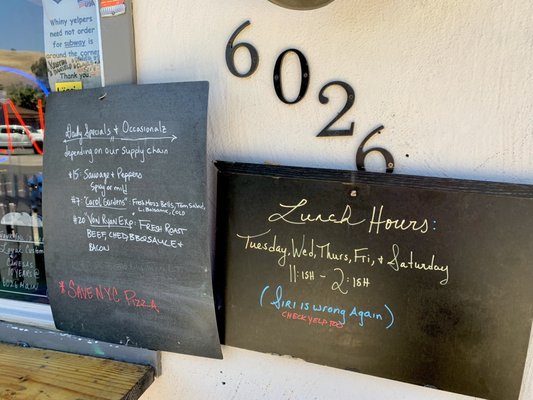 Whiny yelpers
need not order
for subway is
around the corner
Thank you.
6026
Daily Specials & Occasionalz
depending on our supply chain
#15: Sausage & Peppers
Spicy or mild
#7: "Carol Gardens": Fresh Mozz, Bells, Tom, Salami,
Balsamic, COLD
#20 Van Ryan Exp: Fresh Roast
Beef, Ched, BBQ Sauce &
Bacon
*Save NYC Pizza
Lunch Hours:
Tuesday, Wed, Thurs, Fri, & Saturday
11:ISH - 2:ISH
(Siri is wrong Again)
CHECK YELP TOO
10 YEARS @
6026 MAIN